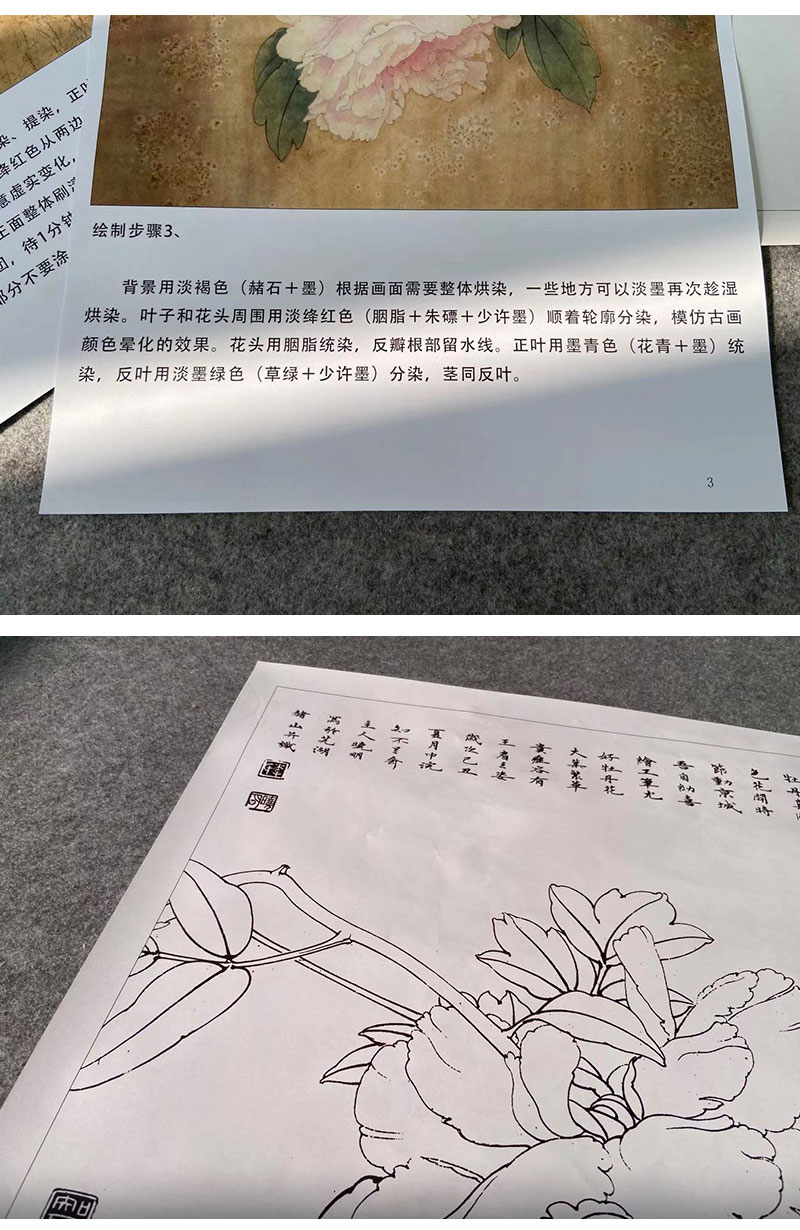 染、提染，正叶
绛红色从两边
意虚实变化，
正面整体刷
待1分钟
部分不要涂
绘制步骤3、
背景用淡褐色（赭石＋墨）根据画面需要整体烘染，一些地方可以淡墨再次趁湿
烘染。叶子和花头周围用淡绛红色（胭脂＋朱磦＋少许墨）顺着轮廓分染，模仿古画
颜色晕化的效果。花头用胭脂统染，反瓣根部留水线。正叶用墨青色（花青＋墨）统
染，反叶用淡墨绿色（草绿＋少许墨）分染，茎同反叶。
3
牡丹真
色花開時
節動京城
吾自幼喜
繪工筆尤
好牡丹花
大葉繁華
畫雍容有
王者之姿
歲次己丑
夏月中浣
知不足齋
主人曉明
寫於芜湖
赭山